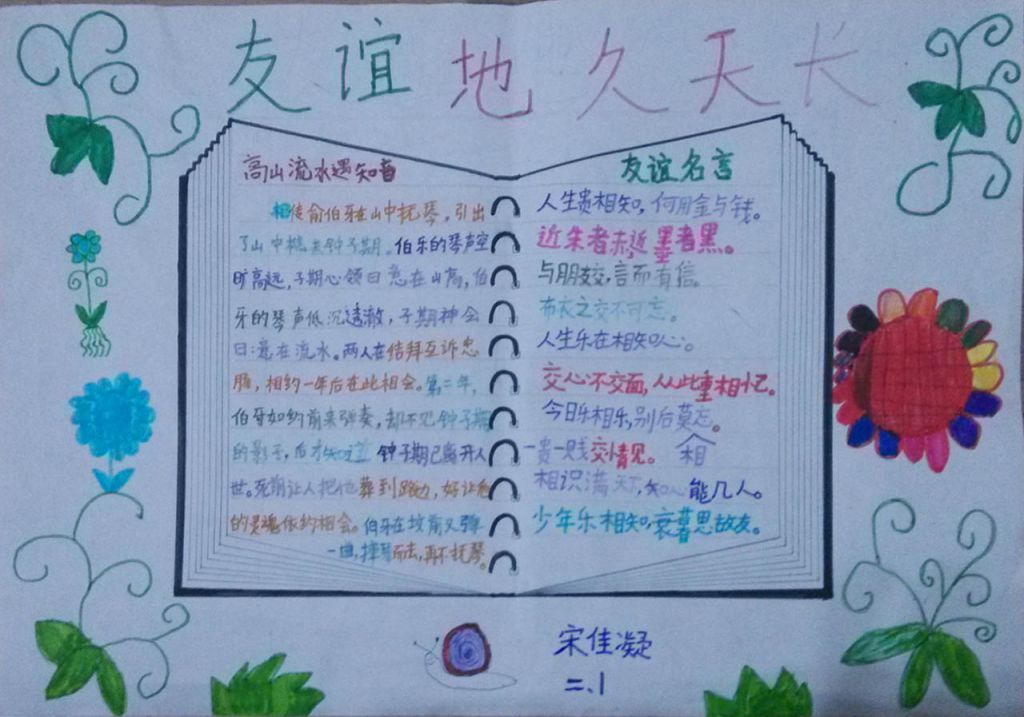 友谊地久天长
高山流水遇知音
相传俞伯牙在山中抚琴，引出
了山中樵夫钟子期。伯乐的琴声空
旷高远，子期心领曰意在山高，伯
牙的琴声低沉透澈，子期神会
曰：意在流水。两人在结拜互诉忠
肠，相约一年后在此相会。第二年，
伯牙如约前来弹奏，却不见钟子期
的影子，后才知道 钟子期已离开人
世。死期让人把他葬到路边，好让他
的灵魂依约相会。伯牙在坟前又弹
一曲，摔琴而去，再不抚琴。
友谊名言
人生贵相知，何用金与钱。
近朱者赤，近墨者黑。
与朋友交，言而有信。
布衣之交不可忘。
人生乐在相知心。
交心不交面，从此重相忆。
今日乐相乐，别后莫忘。
一贵一贱交情见。 相
相识满天下，知心能几人。
少年乐相知，衰暮思故友。
宋佳凝
二、1